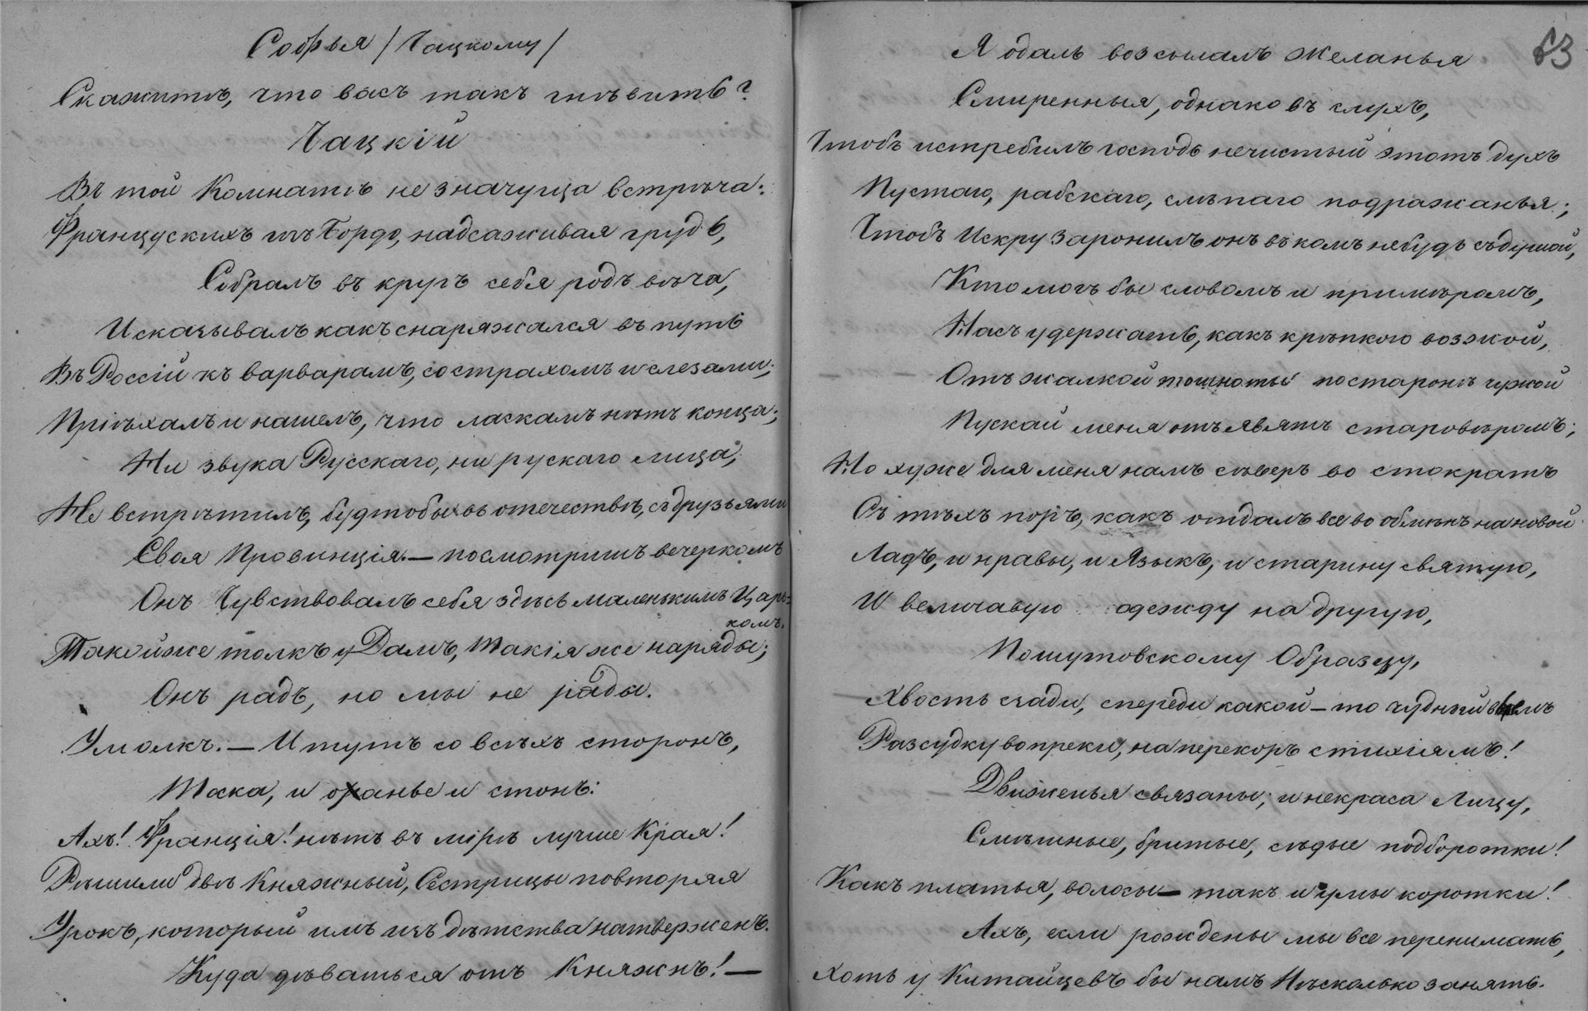 Софья /Чацкому/
Скажите, что васъ такъ гнѣвитъ?
Чацкій
Въ той комнатѣ не значуща встрѣча:
Французскихъ изъ Бордо, надсаживая грудь,
Собралъ въ кругъ себя родъ вѣча,
И сказывалъ какъ снаряжался въ путь
Въ Россій къ варварамъ, со страхомъ и слезами;
Пріѣхалъ и нашелъ, что ласкамъ нѣтъ конца;
Ни звука Русскаго, ни рускаго лица,
Не встрѣтилъ, будтобы въ отечествѣ, съ друзьями
Своя Провинція. — посмотришь вечеркомъ
Онъ Чувствовалъ себя здѣсь маленькимъ Царь=
комъ.
Такойже толкъ у Дамъ, такія же наряды;
Онъ радъ, но мы не рады.
Умолкъ. — И тутъ со всѣхъ сторонъ,
Тоска, и оханье и стонъ:
Ахъ! Франція! нѣтъ въ мірѣ лучше Края!
Рѣшили двѣ Княжный, Сестрицы повторяя
Урокъ, который имъ изъ дѣтства натверженъ.
Куда дѣваться отъ Княжнъ! —
63
Я одаль возсылалъ желанья
Смиренныя, однако въ слухъ,
Чтобъ истребилъ господь нечистый этотъ духъ
Пустаго, рабскаго, слѣпаго подражанья;
Чтобъ Искру заронилъ онъ въ комъ нибудь съ душой,
Кто могъ бы словомъ и примѣромъ,
Насъ удержать, какъ крѣпкою возжой,
Отъ жалкой тошноты по сторонѣ чужой
Пускай меня отъявятъ старовѣромъ;
Но хуже для меня нашъ сѣверъ во стократъ
Съ тѣхъ поръ, какъ отдалъ все во обмѣнъ на новой
Ладъ, и нравы, и Языкъ, и старину святую,
И величавую одежду на другую,
По шутовскому Образцу,
Хвостъ сзади, спереди какой-то чудный выемъ
Разсудку вопреки, на перекоръ стихіямъ!
Движенья связаны; и некраса Лицу,
Смѣшные, бритые, сѣдые подбородки!
Какъ платья, волосы — такъ и умы коротки!
Ахъ, если рождены мы все перенимать,
Хоть у Китайцевъ бы намъ Нѣсколько занять.